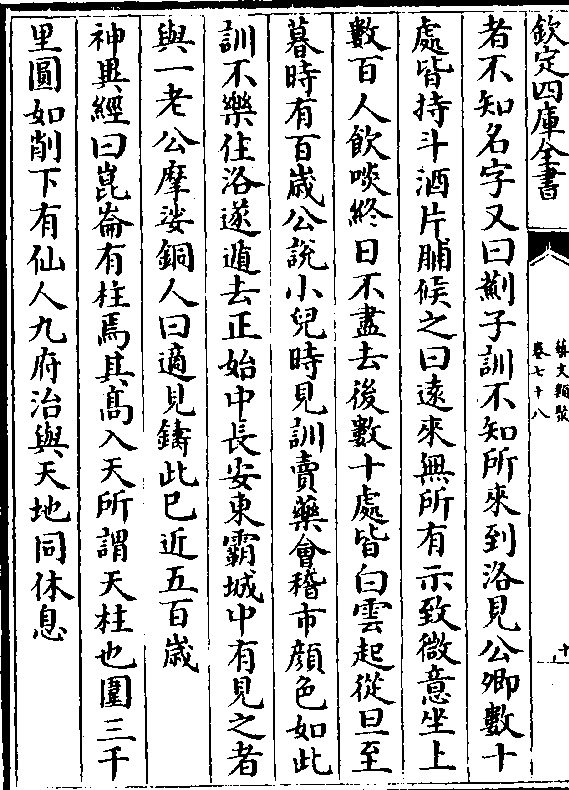 欽定四庫全書
藝文類聚
卷七十八
十
者不知名字又曰薊子訓不知所來到洛見公卿數十
處皆持斗酒片脯候之曰遠來無所有示致微意坐上
數百人飲啖終日不盡去後數十處皆白雲起從旦至
暮時有百歲公說小兒時見訓賣藥會稽市顔色如此
訓不樂住洛遂遁去正始中長安東霸城中有見之者
與一老公摩娑銅人曰適見鑄此已近五百歲
神異經曰崑崙有柱焉其髙入天所謂天柱也圍三千
里圓如削下有仙人九府治與天地同休息